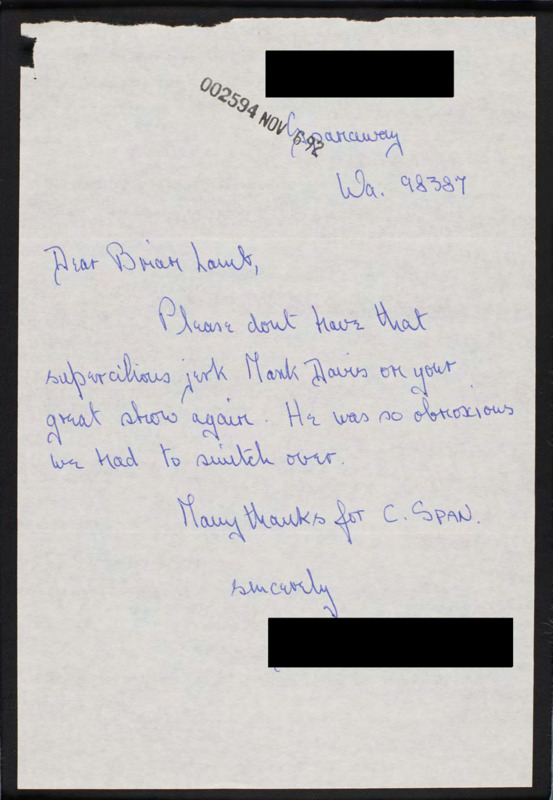 002594 NOV 6 92
Spanaway
Wa. 98387
Dear Brian Lamb,
Please dont have that
supercilious jerk Mark Davis on your
great show again. He was so obnoxious
we had to switch over.
Many thanks for C. SPAN.
sincerely